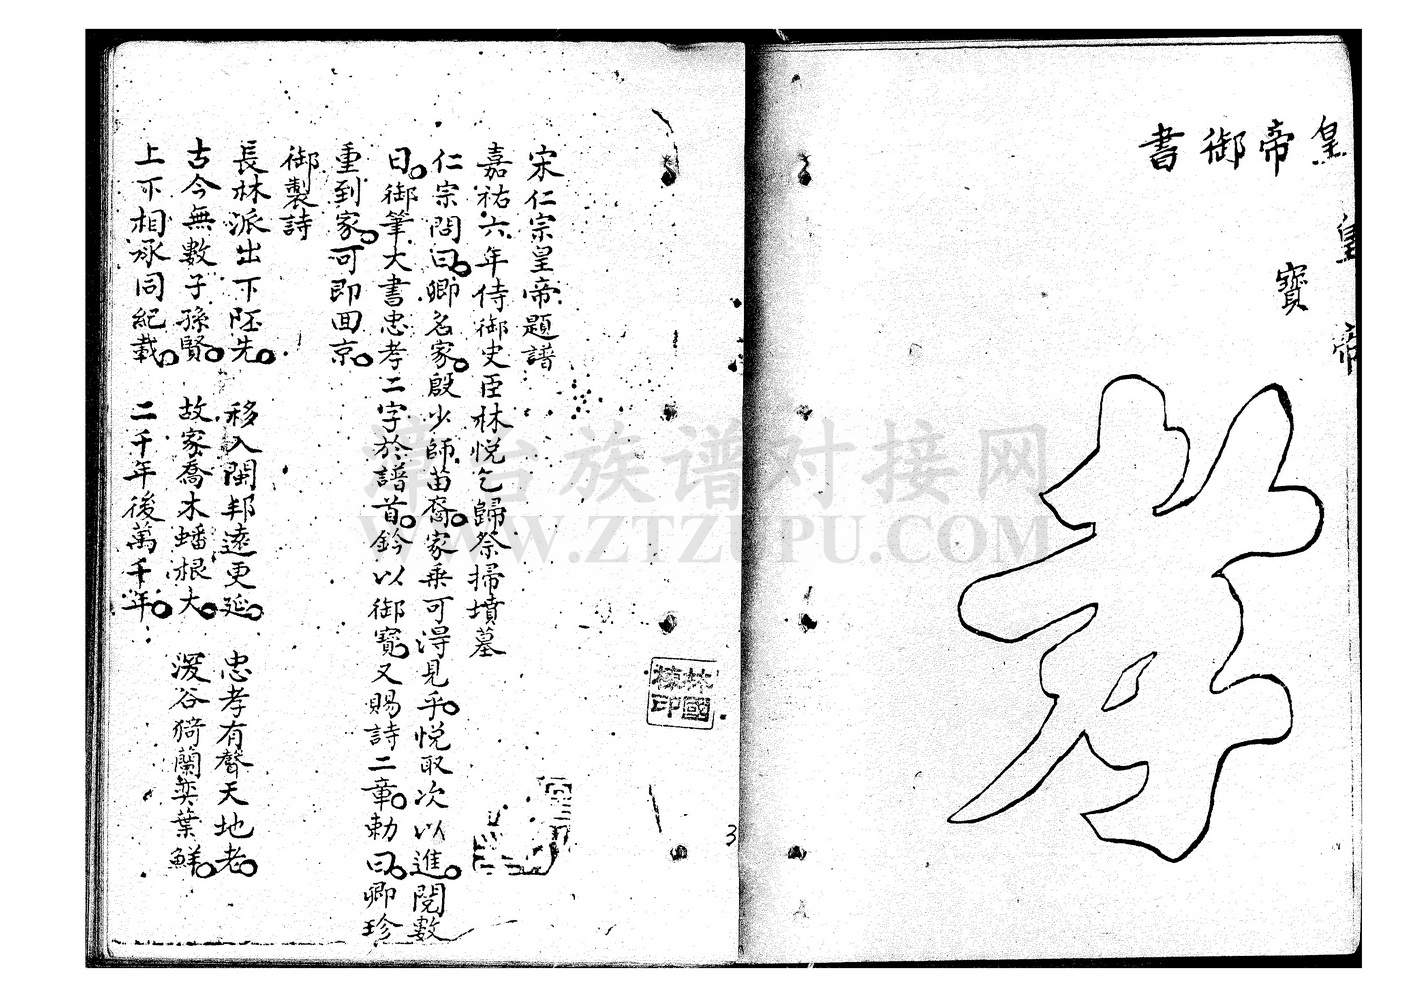 皇帝御書
皇帝
寶
孝
宋仁宗皇帝題譜
嘉祐六年侍御史臣林悅乞歸祭掃墳墓
仁宗問曰。卿名家。殷少師苗裔。家乗可得見乎。悅取次以進。閱數
日。御筆大書忠孝二字於譜首。鈐以御寶。又賜詩二章。勅曰。卿珍
重到家。可即回京。
御製詩
長林派出下邳先。 移入閩邦遠更延。 忠孝有聲天地老。
古今無數子孫賢。 故家喬木蟠根大。 深谷猗蘭奕葉鮮。
上下相承同紀載。 二千年後萬千年。
林國棟印
3
漳台族谱对接网
WWW.ZTZUPU.COM